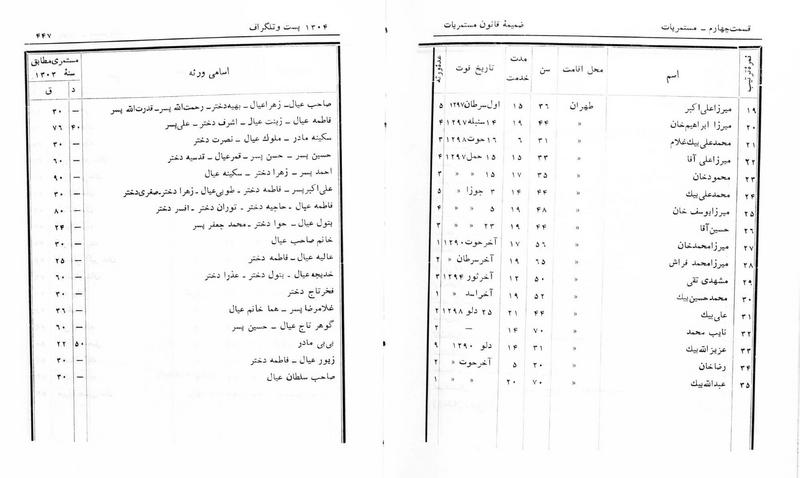 قسمت چهارم ـ مستمریات
ضمیمهٔ قانون مستمریات
نمرهٔ ترتیب اسم محل اقامت سن مدت خدمت تاریخ فوت عدهٔ ورثه
۱۹ میرزا علی اکبر طهران ۳۶ ۱۵ اول سرطان ۱۲۹۷ ۵
۲۰ میرزا ابراهیم خان « ۴۴ ۱۹ ۱۴ سنبله ۱۲۹۷ ۴
۲۱ محمد علی بیك غلام « ۳۱ ۶ ۱۶ حوت ۱۲۹۸ ۳
۲۲ میرزا علی آقا « ۳۳ ۱۵ ۱۵ حمل ۱۲۹۷ ۴
۲۳ محمود خان « ۳۵ ۱۷ ۱۵ « « ۳
۲۴ محمد علی بیك « ۴۴ ۱۴ ۳ جوزا « ۵
۲۵ میرزا یوسف خان « ۴۸ ۱۹ ۵ « « ۴
۲۶ حسین آقا « ۴۴ ۱۹ ۲۳ « « ۳
۲۷ میرزا محمد خان « ۵۶ ۱۷ آخر حوت ۱۲۹۰ ۱
۲۸ میرزا محمد فراش « ۶۵ ۱۹ آخر سرطان « ۲
۲۹ مشهدی تقی « ۵۰ ۱۲ آخر ثور ۱۲۹۴ ۳
۳۰ محمد حسین بیك « ۵۲ ۱۹ آخر اسد « ۱
۳۱ علی بیك « ۴۴ ۲۱ ۲۵ دلو ۱۲۹۸ ۲
۳۲ نایب محمد « ۷۰ ۱۴ — ۲
۳۳ عزیز الله بیك « ۳۱ ۱۴ دلو ۱۲۹۰ ۹
۳۴ رضا خان « ۲۰ ۵ آخر حوت « ۲
۳۵ عبدالله بیك « ۷۰ ۲۰ « « ۱
۱۳۰۴ پست و تلگراف
۴۴۷
اسامی ورثه مستمری مطابق سنهٔ ۱۳۰۳
د ق
صاحب عیال ـ زهرا عیال ـ بهیه دختر ـ رحمت الله پسر ـ قدرت الله پسر — ۳۰
فاطمه عیال ـ زینت عیال ـ اشرف دختر ـ علی پسر ۴۰ ۷۶
سکینه مادر ـ ملوك عیال ـ نصرت دختر — ۳۰
حسین پسر ـ حسن پسر ـ قمر عیال ـ قدسیه دختر — ۶۰
احمد پسر ـ زهرا دختر ـ سکینه عیال — ۹۰
علی اکبر پسر ـ فاطمه دختر ـ طوبی عیال ـ زهرا دختر ـ صغری دختر — ۳۰
فاطمه عیال ـ حاجیه دختر ـ توران دختر ـ افسر دختر — ۸۰
بتول عیال ـ حوا دختر ـ محمد جعفر پسر — ۲۴
خانم صاحب عیال — ۳۰
عالیه عیال ـ فاطمه دختر — ۲۵
خدیجه عیال ـ بتول دختر ـ عذرا دختر — ۶۰
فخر تاج دختر — ۳۰
غلامرضا پسر ـ هما خانم عیال — ۳۶
گوهر تاج عیال ـ حسین پسر — ۶۰
بی بی مادر ۵۰ ۲۲
زیور عیال ـ فاطمه دختر — ۳۰
صاحب سلطان عیال — ۳۰